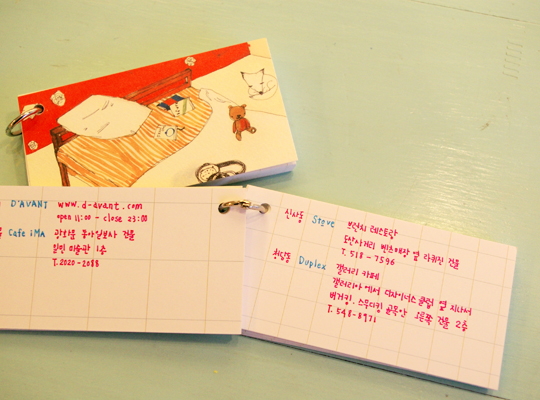 D'AVANT www.d-avant.com
open 11:00 - close 23:00
Cafe iMA 광화문 동아일보사 건물
일민 미술관 1층
T. 2020-2088
신사동 Steve 브런치 레스토랑
도산사거리 벤츠매장 옆 라퀴진 건물
T. 518-7596
청담동 Duplex 갤러리 카페
갤러리아 에서 디자이너스 클럽 옆 지나서
버거킹. 스무디킹 골목안 오른쪽 건물 2층
T. 548-8971